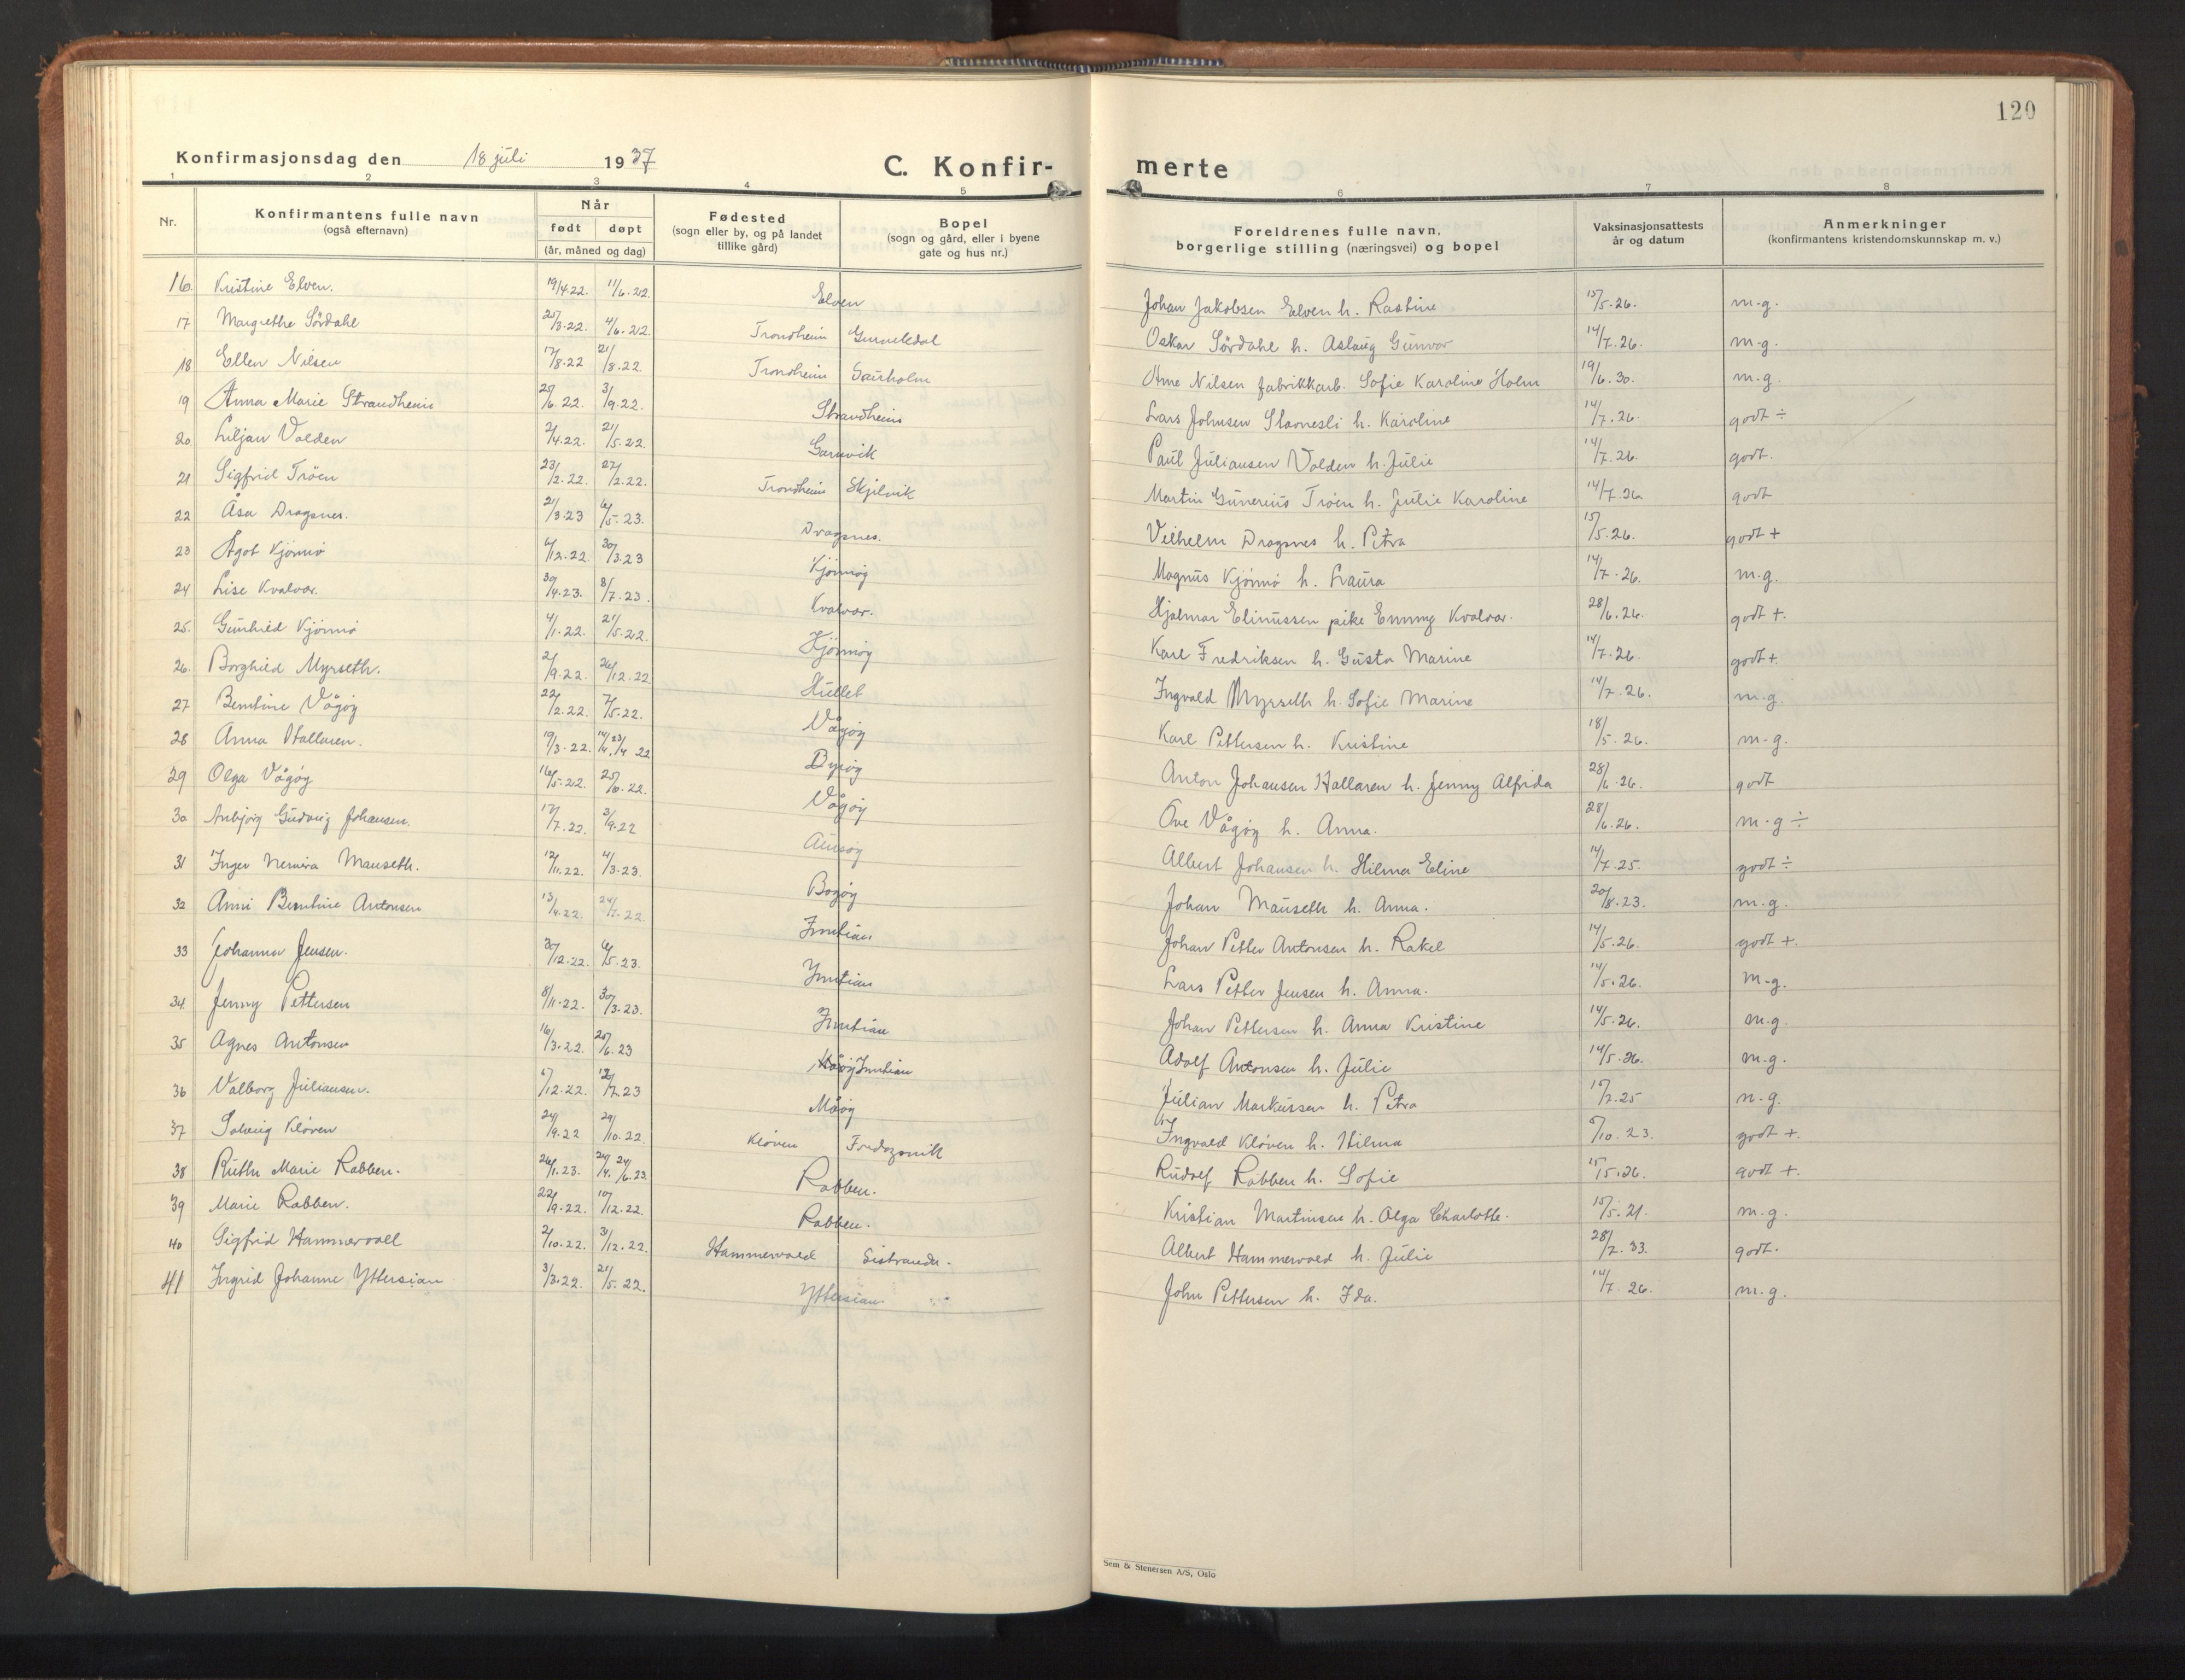 120
Konfirmasjonsdag den 18 juli 1937
C. Konfir-
merte
1 2 3 4 5 6 7 8
Nr.
Konfirmantens fulle navn
(også efternavn)
Når
født døpt
(år, måned og dag)
Fødested
(sogn eller by, og på landet
tillike gård)
Bopel
(sogn og gård, eller i byene
gate og hus nr.)
Foreldrenes fulle navn,
borgerlige stilling (næringsvei) og bopel
Vaksinasjonsattests
år og datum
Anmerkninger
(konfirmantens kristendomskunnskap m. v.)
16. Kristine Elven. 19/4.22. 11/6.22. Elven Johan Jakobsen Elven h. Rastine 15/5.26. m.g.
17 Margrethe Sördahl 25/3.22. 4/6.22. Trondheim Oskar Sördahl h. Aslaug Gunvor 14/7.26. m.g.
18 Ellen Nilsen 17/8.22 21/8.22. Trondheim Saurholm Arne Nilsen fabrikkarb. Sofie Karoline Holm 19/6.30. m.g.
19 Anna Marie Strandheim 25/6.22. 3/9.22. Strandheim Lars Johnsen h. Karoline 14/7.26. godt ÷
20 Liljan Valden 2/4.22. 21/5.22. Garnvik Paul Juliausen Valden h. Julie 14/7.26. godt.
21 Sigfrid Tröen 23/2.22. 27/2.22. Trondheim Skjelvik Martin Gunerius Tröen h. Julie Karoline 14/7.26. godt
22 Åsa Dragsnes. 21/3.23 6/5.23. Dragsnes. Vilhelm Dragsnes h. Petra 15/5.26. godt +
23 Ågot Kjönnö 6/12.22. 30/3.23 Kjönnöy Magnus Kjönnö h. Laura 14/7.26. m.g.
24 Lise Kvalvær. 30/4.23. 8/7.23. Kvalvær. Hjalmar Elinussen pike Emmy Kvalvær. 28/6.26. godt +.
25. Gunhild Kjönnö 4/1.22. 21/5.22. Kjönnöy Karl Fredriksen h. Gusta Marine 14/7.26. godt +
26. Borghild Myrseth. 2/9.22. 26/12.22 Hullet Ingvald Myrseth h. Sofie Marine 14/7.26. m.g.
27 Berntine Vågöy 22/2.22. 7/5.22. Vågöy Karl Pettersen h. Kristine 18/5.26. m.g.
28 Anna Hallaren. 19/3.22. 14/4. 23/4 22 Dyröy Anton Johansen Hallaren h. Jenny Alfrida 28/6.26. godt
29 Olga Vågöy 16/5.22. 25/6.22. Vågöy Ove Vågöy h. Anna. 28/6.26. m.g ÷
30 Anbjörg Gudveig Johansen. 17/7.22. 3/9.22 Albert Johansen h. Hilma Eline 14/7.25. godt ÷
31 Inger Mauseth. 12/11.22. 4/3.23. Bogöy Johan Mauseth h. Anna. 20/8.23. m.g.
32 Anni Berntine Antonsen 13/4.22. 24/7.22. Inntian Johan Petter Antonsen h. Rakel 14/5.26. godt +.
33 Johanna Jensen. 30/12.22. 6/5.23. Inntian Lars Petter Jensen h. Anna. 14/5.26. m.g.
34. Jenny Pettersen 8/11.22. 30/3.23. Inntian Johan Pettersen h. Anna Kristine 14/5.26. m.g.
35 Agnes Antonsen 16/3.22. 25/6.23 Inntian Adolf Antonsen h. Julie 14/5.26. m.g.
36 Valborg Juliansen. 6/12.22. 12/7.23 Måöy Julian Markussen h. Petra 15/7.25 m.g.
37 Solveig Klöven 24/9.22 29/10.22. Klöven Ingvald Klöven h. Hilma 6/10.23. godt +.
38 Ruth Marie Rabben. 26/1.23. 24/4. 24/6.23. Rabben. Rudolf Rabben h. Sofie 15/5.26. godt +.
39 Marie Rabben. 22/9.22. 10/12.22. Rabben. Kristian Martinsen h. Olga Charlotte. 15/5.21. m.g.
40 Sigfrid Hammervoll 2/10.22. 31/12.22. Hammervold Sistranda. Albert Hammervold h. Julie 28/2.33. godt.
41 Ingrid Johanne Yttersian 3/3.22. 21/5.22. Yttersian John Pettersen h. Ida. 14/7.26. m.g.
Sem & Stenersen A/S, Oslo